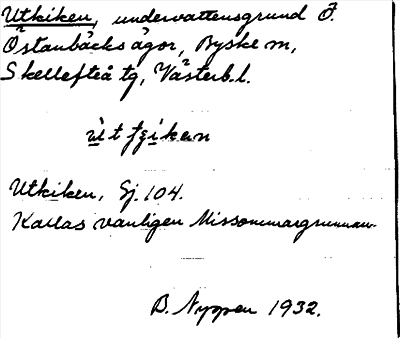 Utkiken, undervattensgrund Ö.
Östanbäcks ägor, Byske sn,
Skellefteå tg, Västerb.l.
Utkiken, Sj. 104.
Kallas vanligen Missommargrunnan.
B. Nyppen 1932.